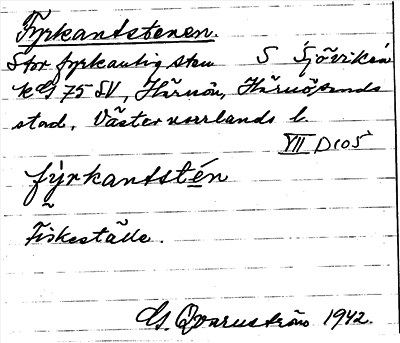 Fyrkantstenen.
Stor fyrkantig sten S Sjöviken
kG 75 SV, Härnön, Härnösands
stad, Västernorrlands l.
VII D105
fy̆rkantstén
~
Fiskeställe.
G. Qvarnström 1942.